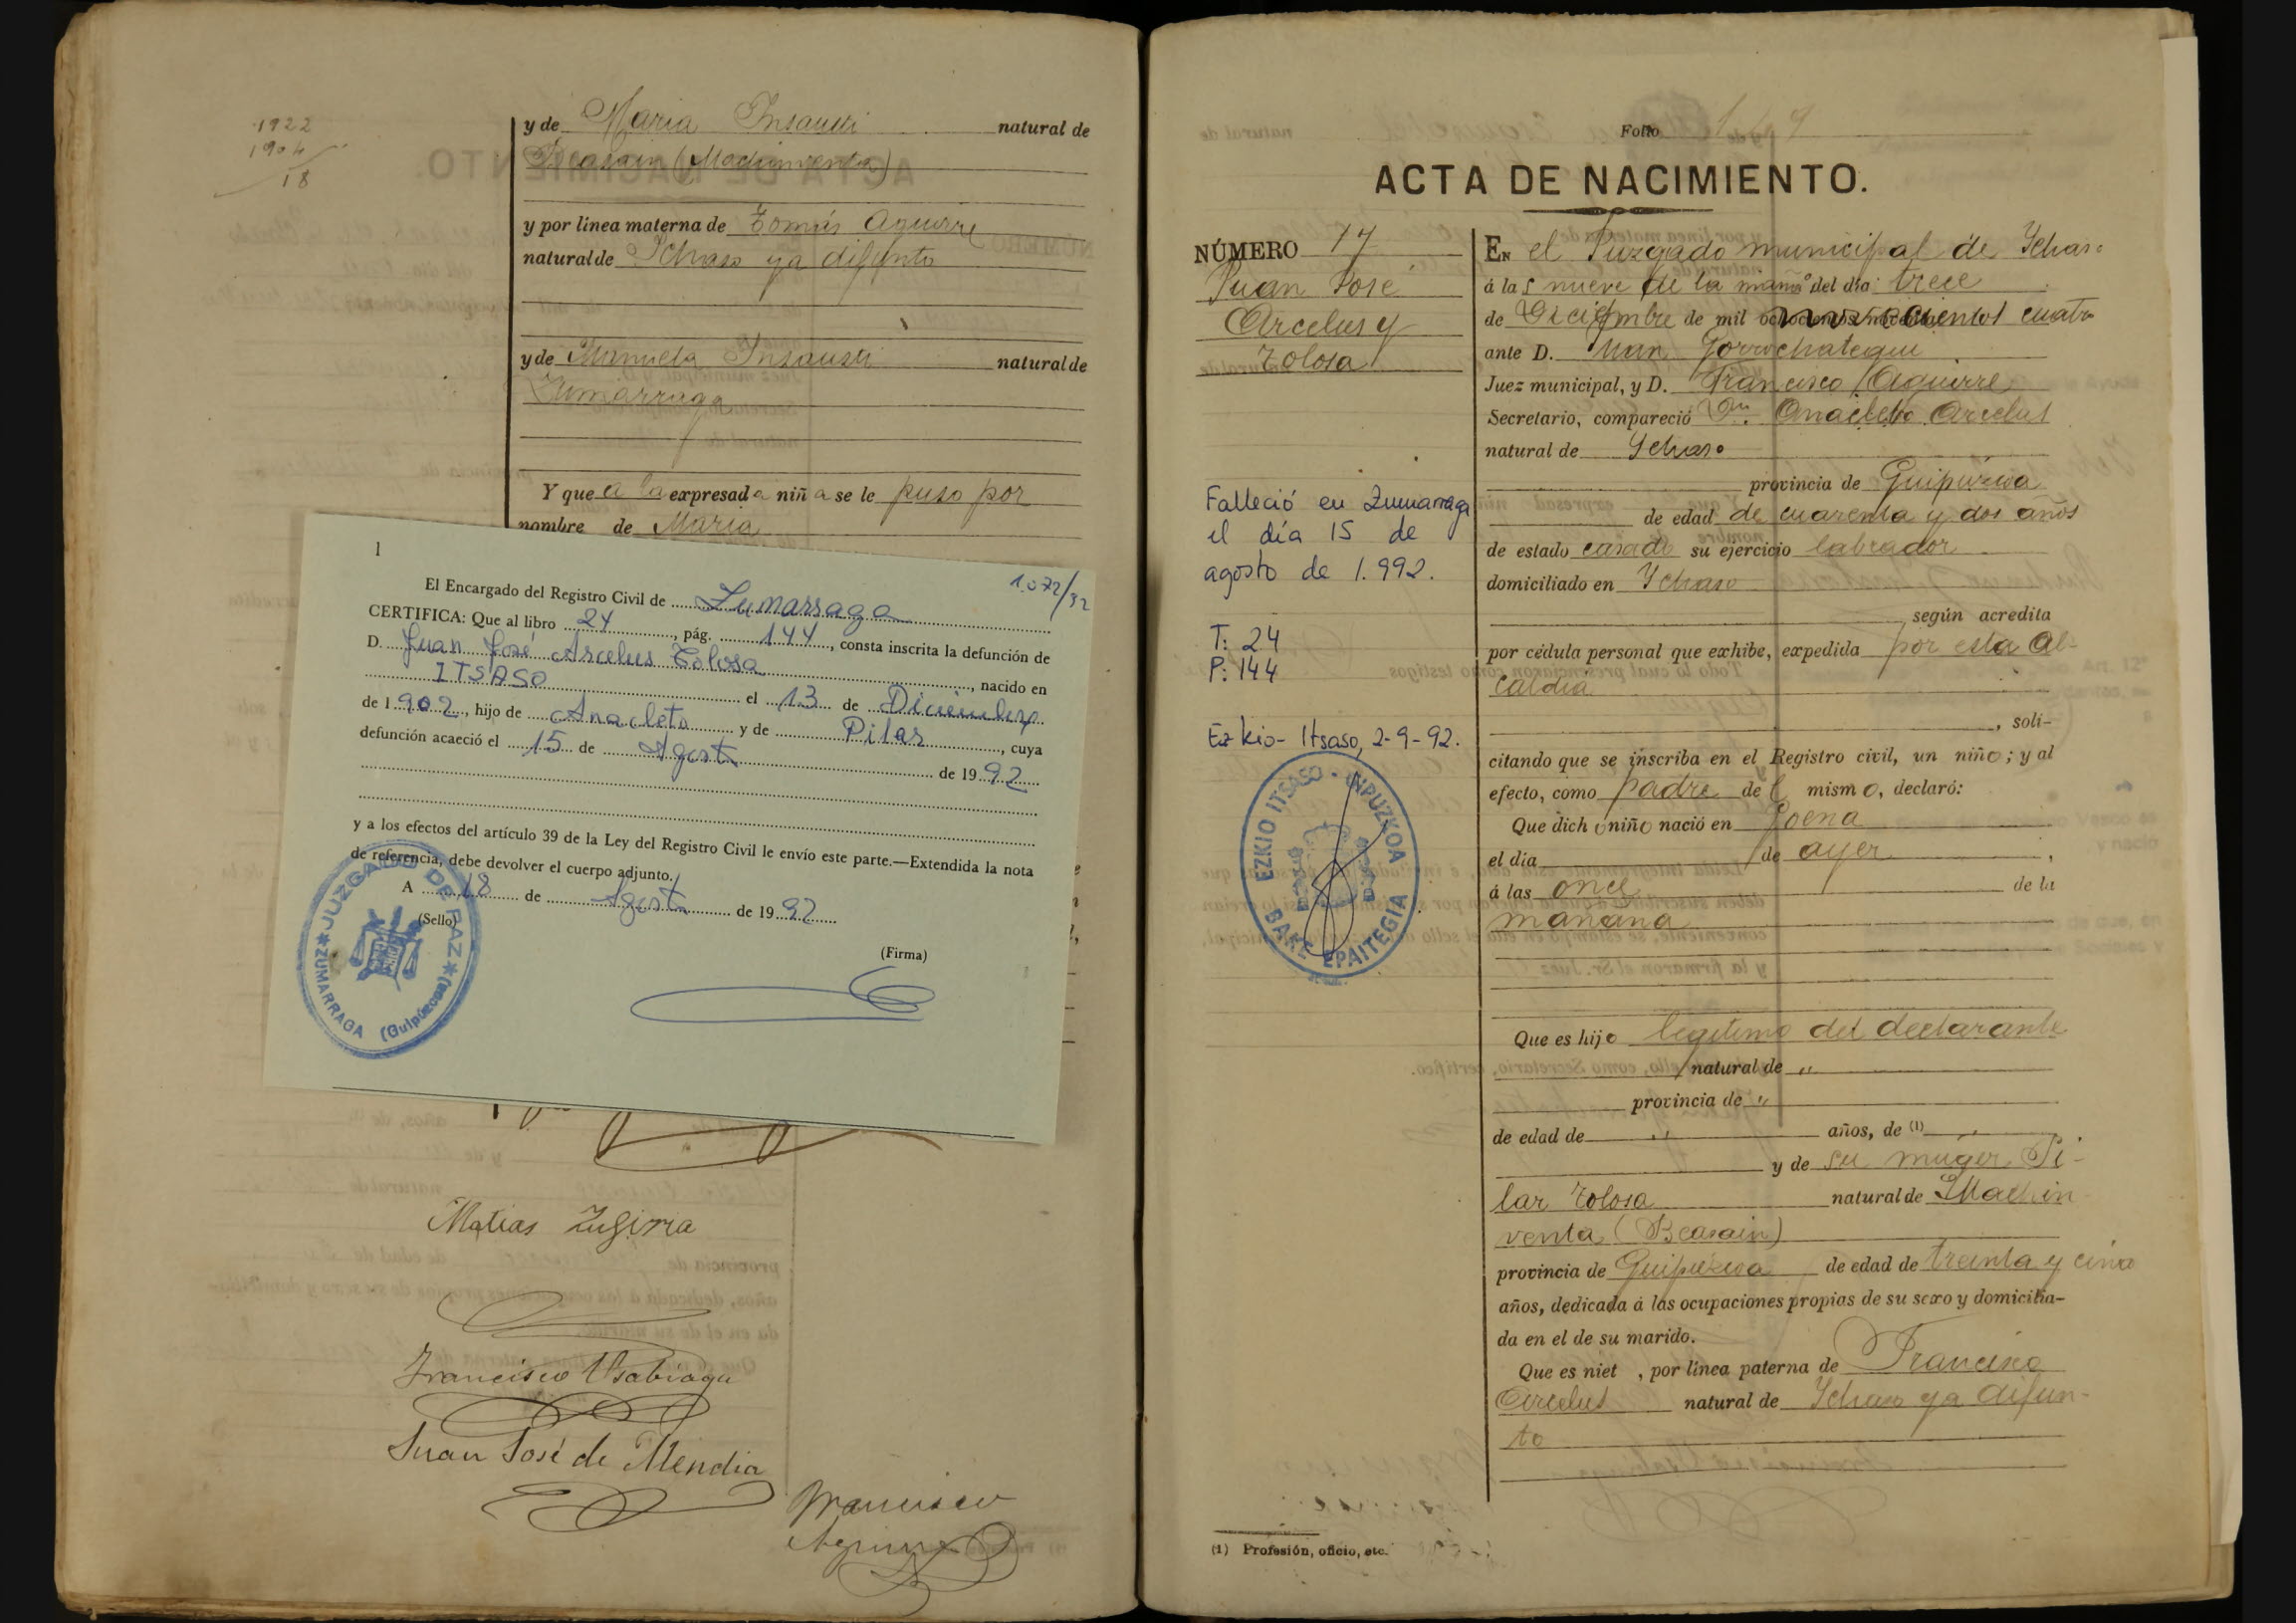 1922
1904
18
y de Maria Insausti natural de
Beasain (Machinventa)
y por línea materna de Tomás Aguirre
natural de Ichaso ya difunto
y de Manuela Insausti natural de
Zumarraga
Y que a la expresada niña se le puso por
nombre de Maria
1
1.072/92
El Encargado del Registro Civil de Zumarraga
CERTIFICA: Que al libro 24, pág. 144, consta inscrita la defunción de
D. Juan José Arcelus Tolosa
ITSASO, nacido en
el 13 de Diciembre
de 1902, hijo de Anacleto y de Pilar, cuya
defunción acaeció el 15 de Agosto
de 1992
y a los efectos del artículo 39 de la Ley del Registro Civil le envío este parte.—Extendida la nota
de referencia, debe devolver el cuerpo adjunto.
A 18 de Agosto de 1992
(Sello)
(Firma)
JUZGADO DE PAZ
ZUMARRAGA (Guipúzcoa)
Matias
Francisco Usabiaga
Juan José de Mendia
Francisco
Aguirre
Folio
ACTA DE NACIMIENTO.
NÚMERO 17
Juan José
Arcelus y
Tolosa
Falleció en Zumarraga
el día 15 de
agosto de 1.992.
T: 24
P: 144
Ezkio-Itsaso, 2-9-92.
EZKIO ITSASO - GIPUZKOA
BAKE EPAITEGIA
En el Juzgado municipal de Ichaso
á las nueve de la mañª del dia trece
de Diciembre de mil novecientos cuatro
ante D. Juan Gorrochategui
Juez municipal, y D. Francisco Aguirre
Secretario, compareció Dn. Anacleto Arcelus
natural de Ichaso
provincia de Guipúzcoa
de edad de cuarenta y dos años
de estado casado su ejercicio labrador
domiciliado en Ichaso
según acredita
por cédula personal que exhibe, expedida por esta Al-
caldia
, soli-
citando que se inscriba en el Registro civil, un niño; y al
efecto, como padre del mismo, declaró:
Que dicho niño nació en Goena
el dia de ayer,
á las once de la
mañana
Que es hijo legitimo del declarante
natural de "
provincia de "
de edad de " años, de (1) "
y de su muger Pi-
lar Tolosa natural de Machin
venta (Beasain)
provincia de Guipúzcoa de edad de treinta y cinco
años, dedicada á las ocupaciones propias de su sexo y domicilia-
da en el de su marido.
Que es niet , por línea paterna de Francisco
Arcelus natural de Ichaso ya difun-
to
(1) Profesión, oficio, etc.